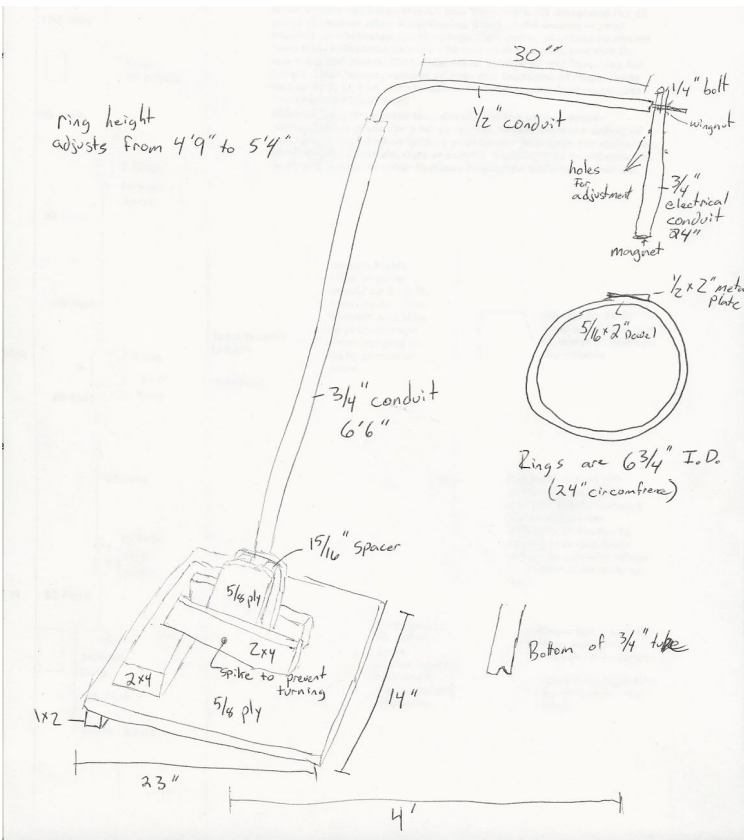 30"
1/4" bolt
wingnut
1/2" conduit
ring height
adjusts from 4'9" to 5'4"
holes
for
adjustment
3/4"
electrical
conduit
24"
magnet
1/2 x 2" meta
plate
5/16 x 2" Dowel
3/4" conduit
6'6"
Rings are 6 3/4" I.D.
(24" circomfrence)
15/16" spacer
5/8 ply
2x4
spike to prevent
turning
2x4
5/8 ply
1x2
14"
23"
4'
Bottom of 3/4" tube